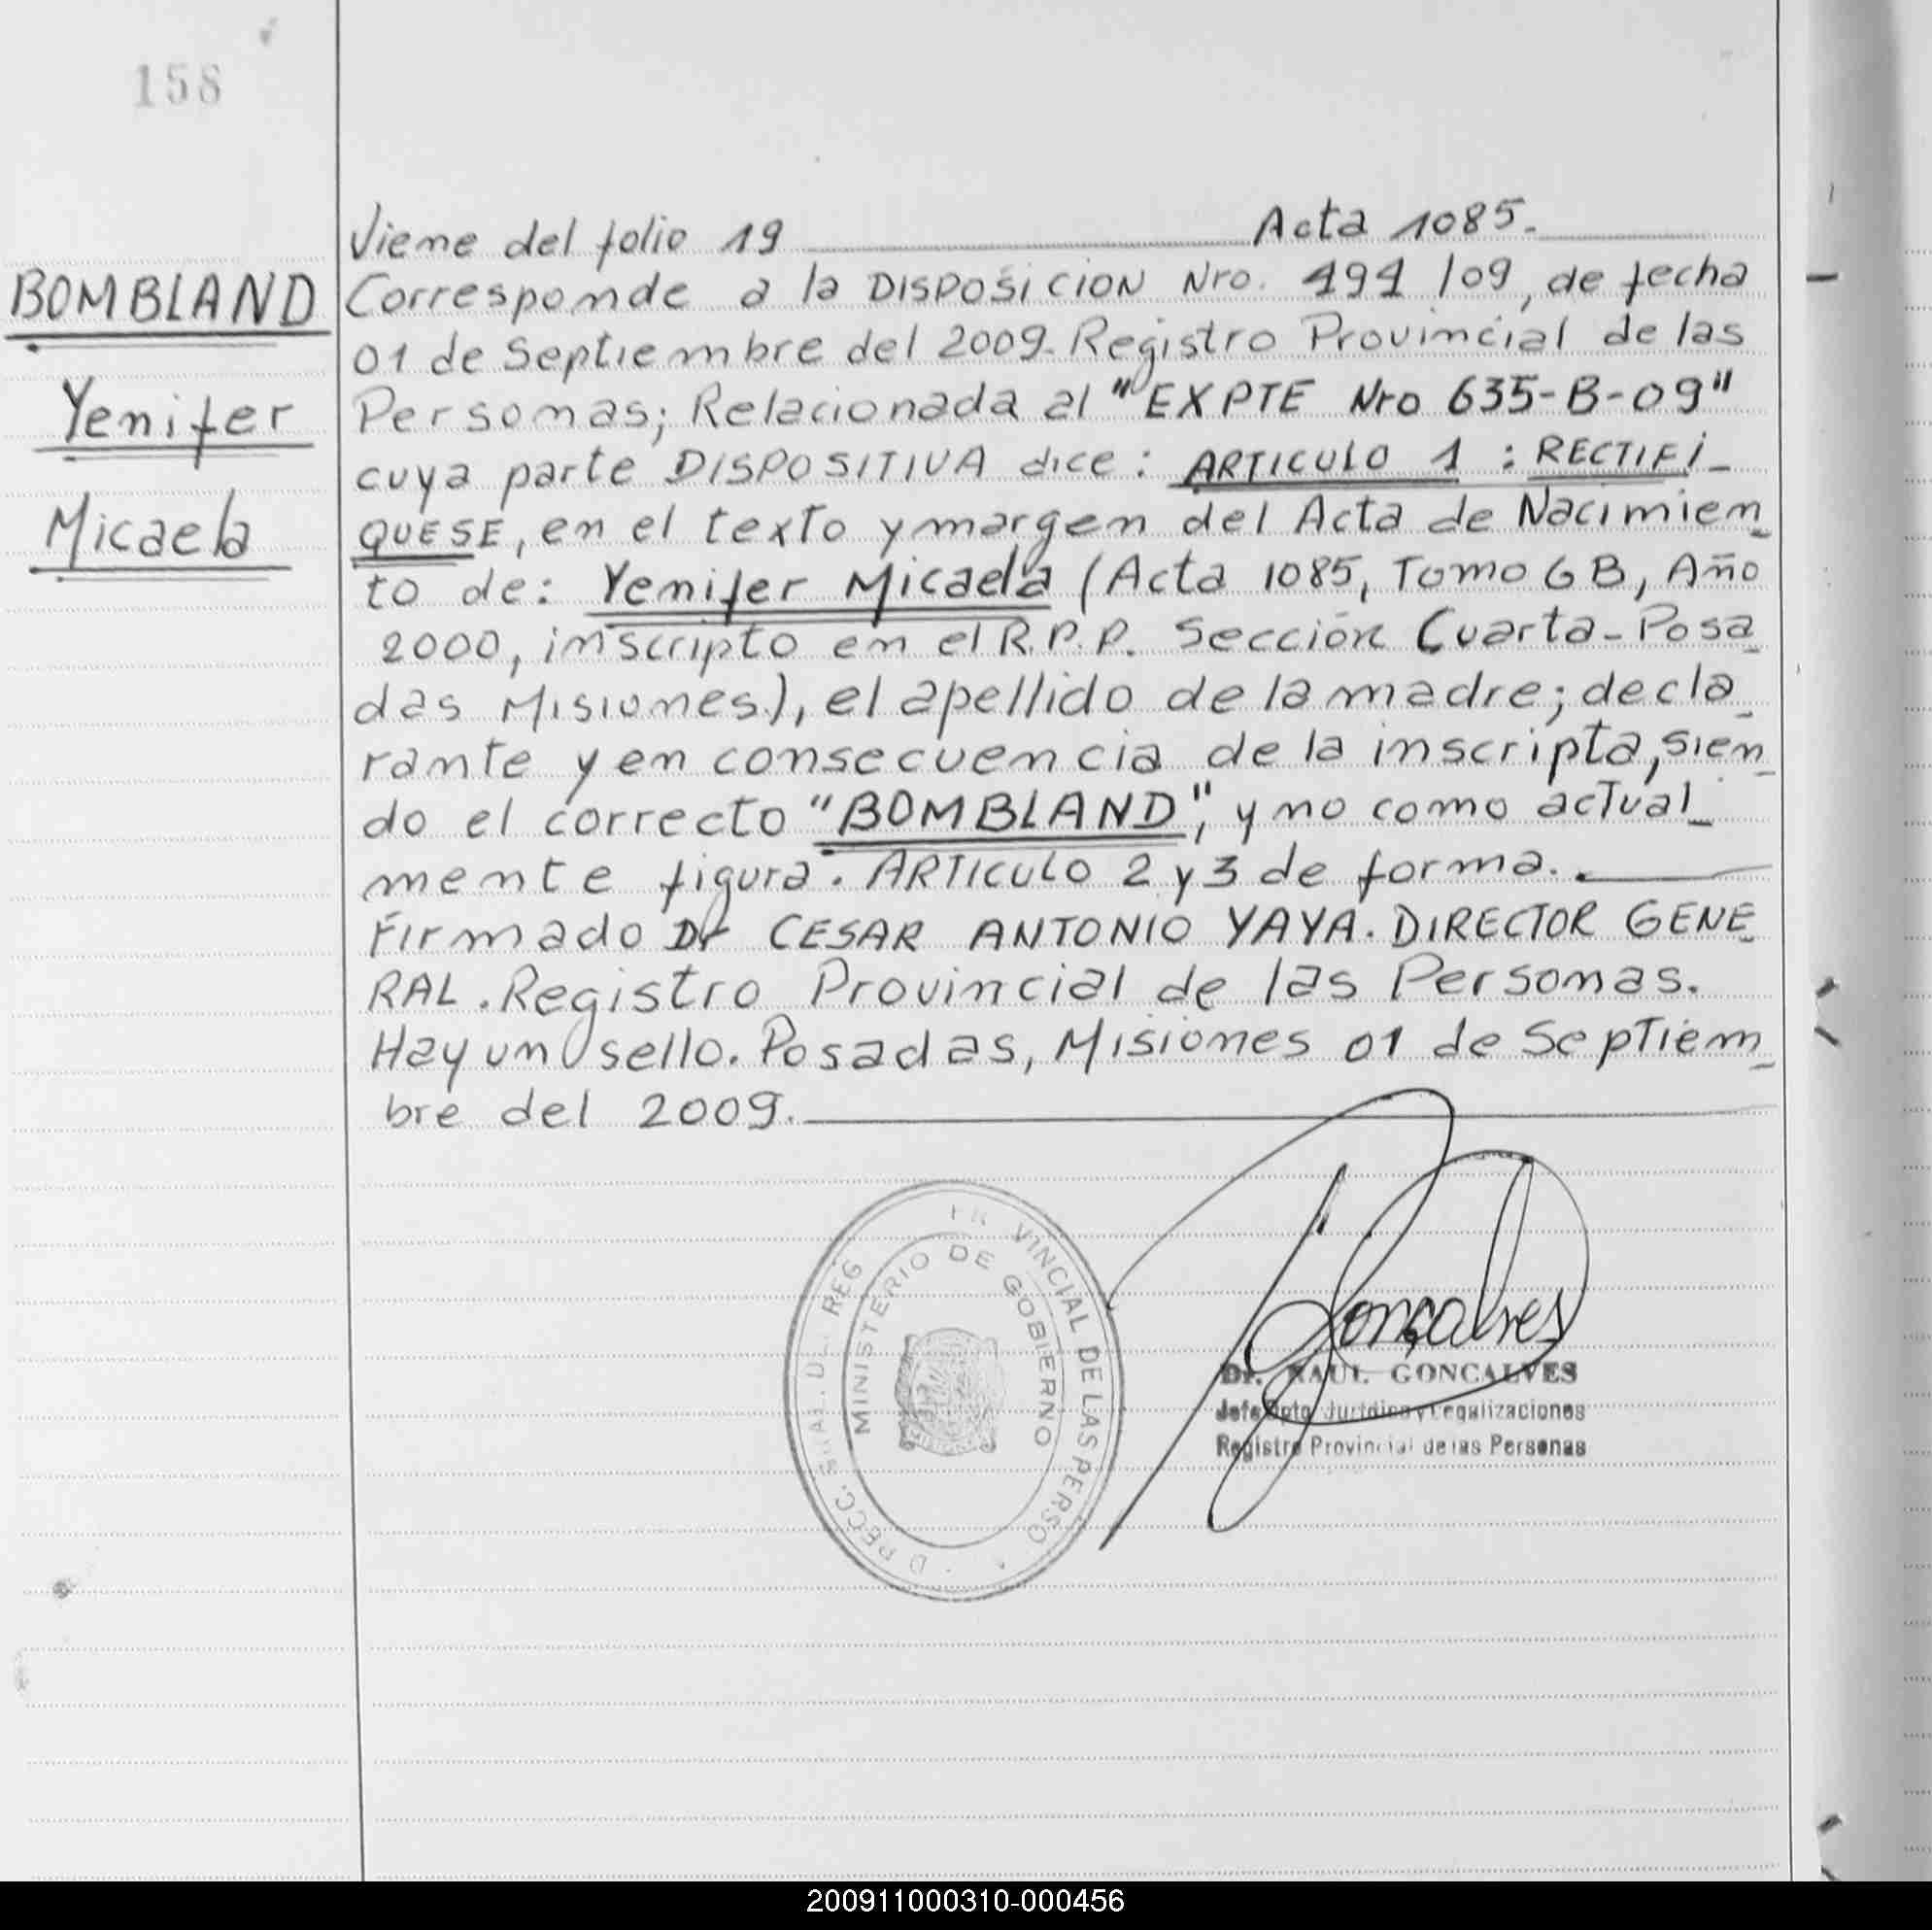 158
BOMBLAND
Yenifer
Micaela
Viene del folio 19 Acta 1085.
Corresponde a la DISPOSICION Nro. 491/09, de fecha
01 de Septiembre del 2009. Registro Provincial de las
Personas; Relacionada al "EXPTE Nro 635-B-09"
cuya parte DISPOSITIVA dice: ARTICULO 1 : RECTIFI_
QUESE, en el texto y margen del Acta de Nacimien_
to de: Yenifer Micaela (Acta 1085, Tomo 6B, Año
2000, inscripto en el R.P.P. Sección Cuarta-Posa_
das Misiones), el apellido de la madre; decla_
rante y en consecuencia de la inscripta, sien_
do el correcto "BOMBLAND", y no como actual_
mente figura. ARTICULO 2 y 3 de forma.
Firmado Dr CESAR ANTONIO YAYA. DIRECTOR GENE_
RAL. Registro Provincial de las Personas.
Hay un sello. Posadas, Misiones 01 de Septiem_
bre del 2009.
MINISTERIO DE GOBIERNO
VINCIAL DE LAS PERSO
Gonçalves
Dr. RAUL GONCALVES
Jefe Dpto. Juridico y Legalizaciones
Registro Provincial de las Personas
200911000310-000456